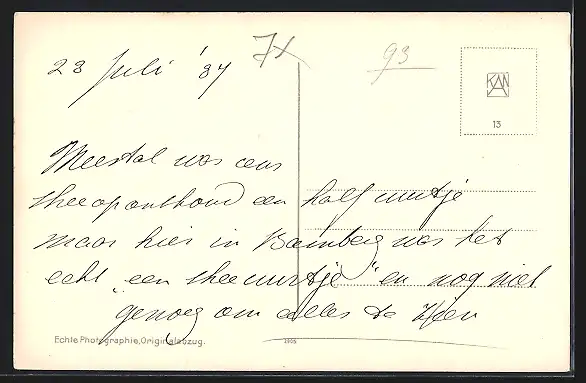 23 Juli '37
7x
93
KAN
13
Meestal was ons
theeoponthoud een half uurtje
maar hier in Bamberg was het
echt „een theeuurtje" en nog niet
genoeg om alles te zien
Echte Photographie, Originalabzug.
2905